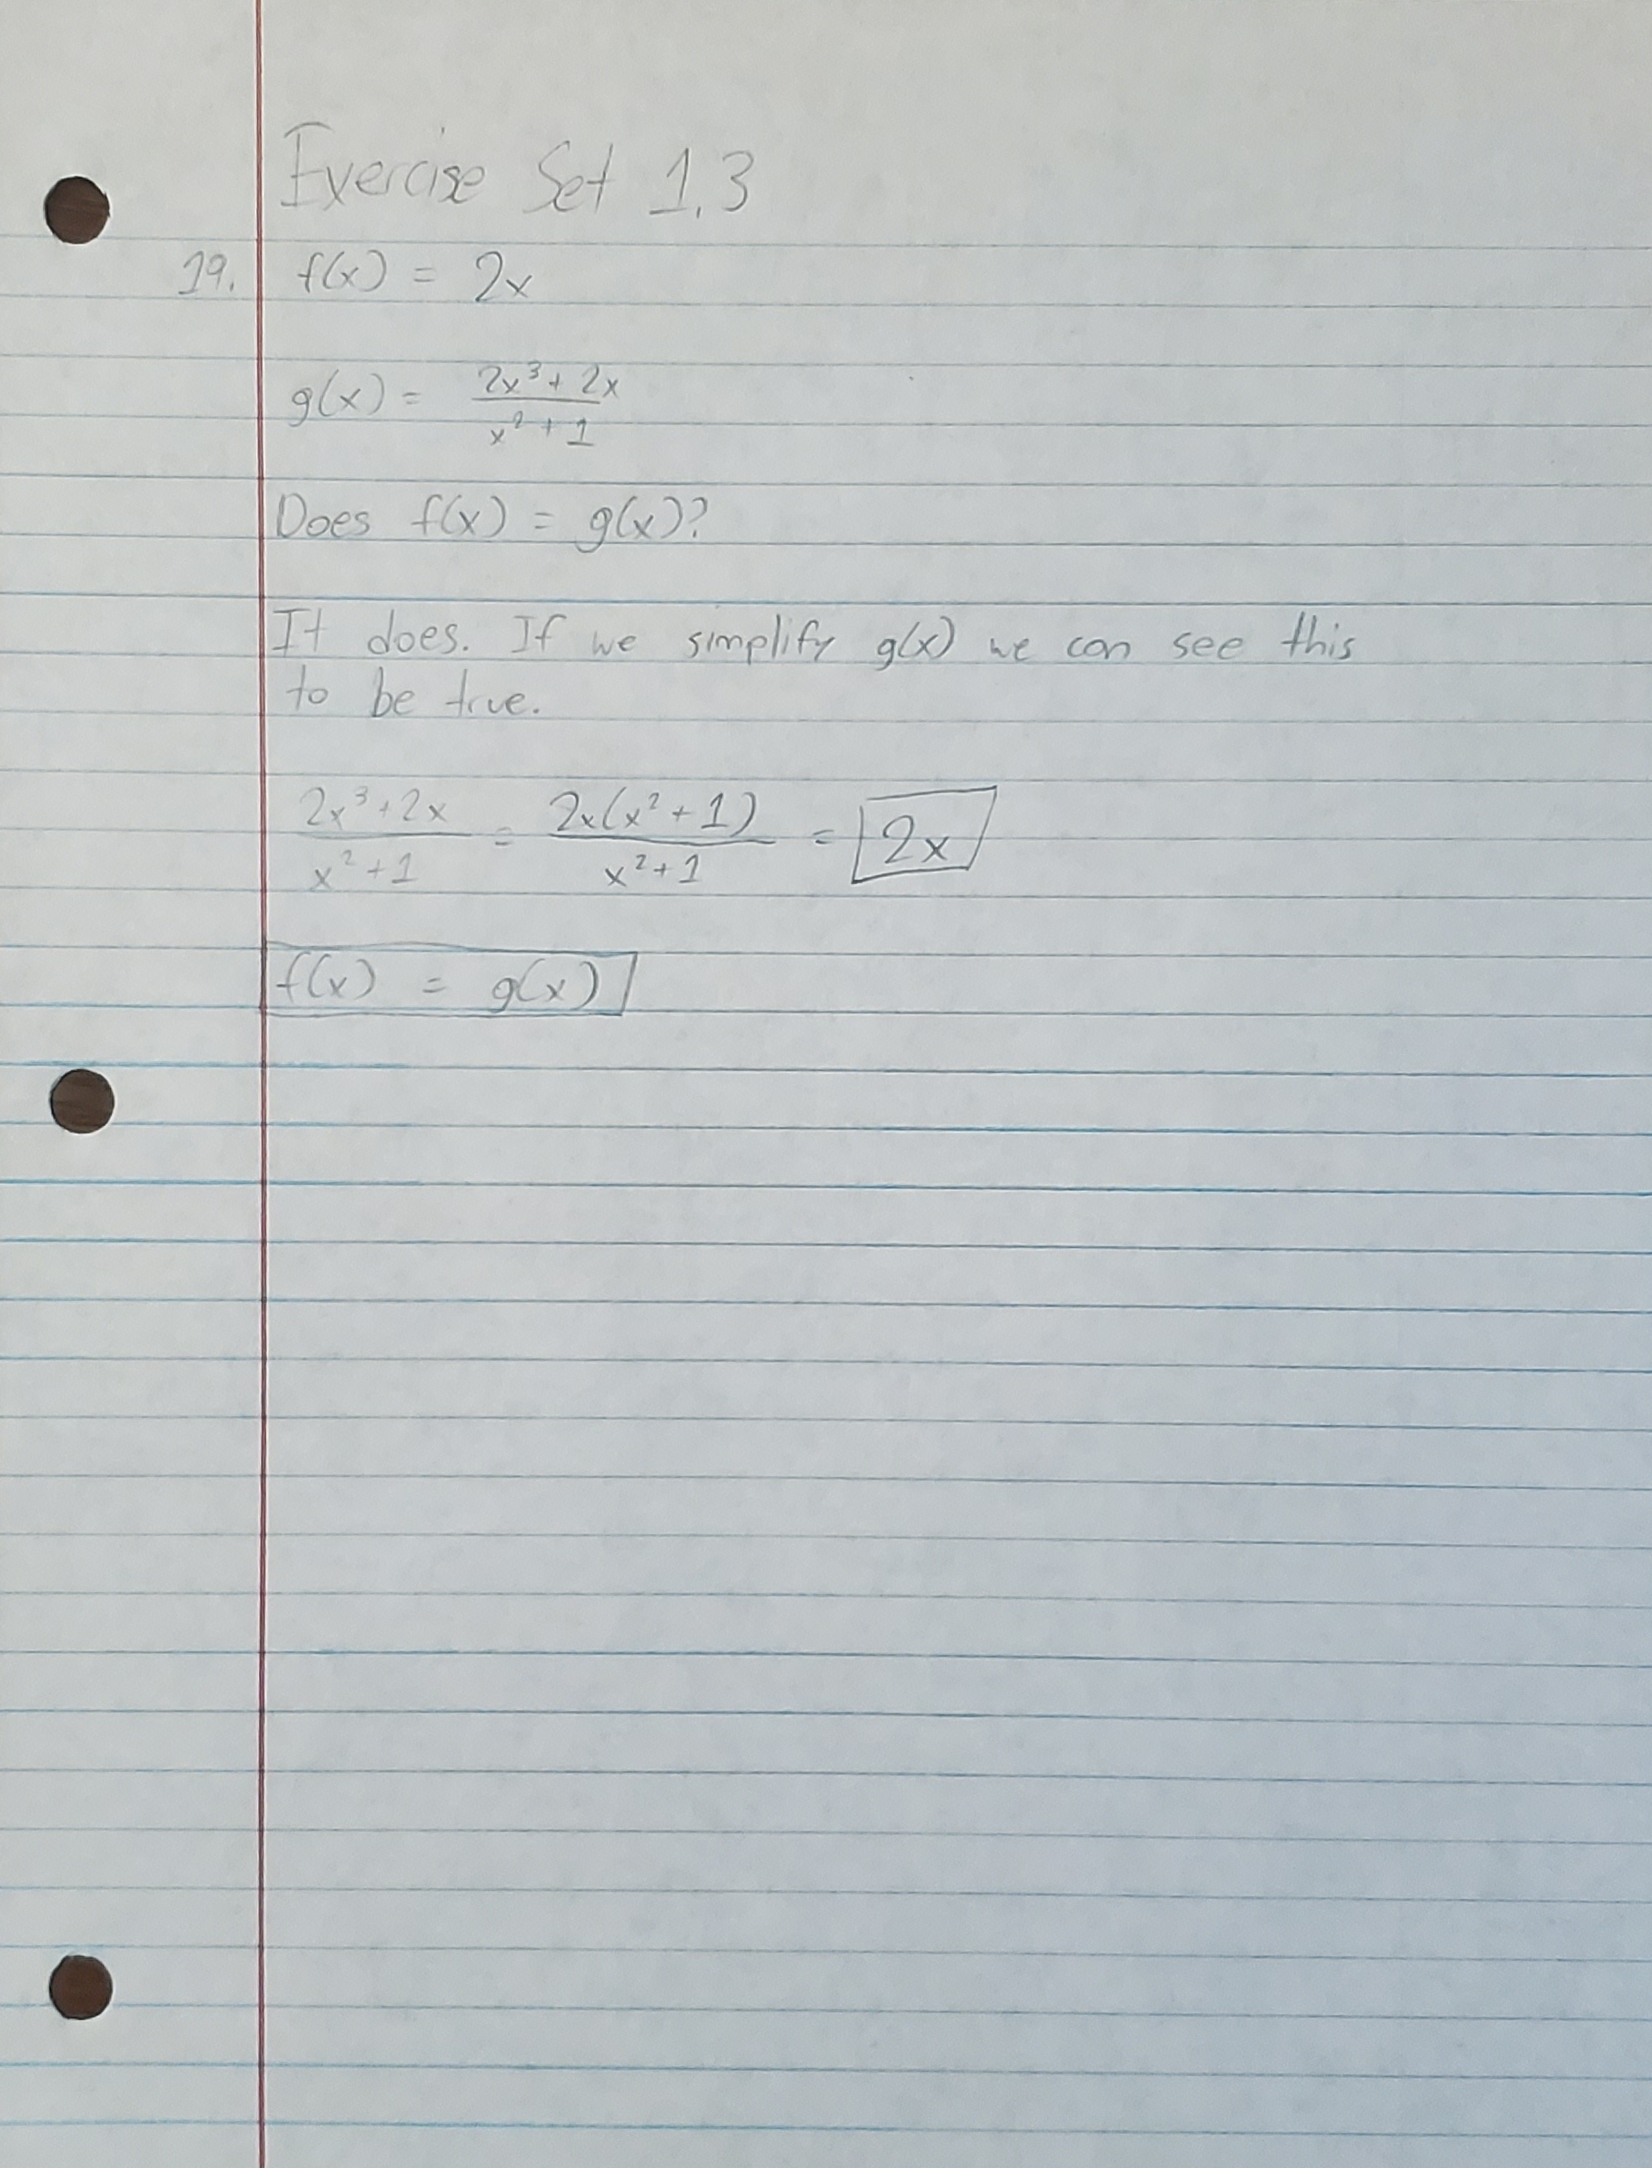 Exercise Set 1.3
19. f(x) = 2x
g(x) = \frac{2x^3 + 2x}{x^2 + 1}
Does f(x) = g(x)?
It does. If we simplify g(x) we can see this
to be true.
\frac{2x^3 + 2x}{x^2 + 1} = \frac{2x(x^2 + 1)}{x^2 + 1} = 2x
f(x) = g(x)